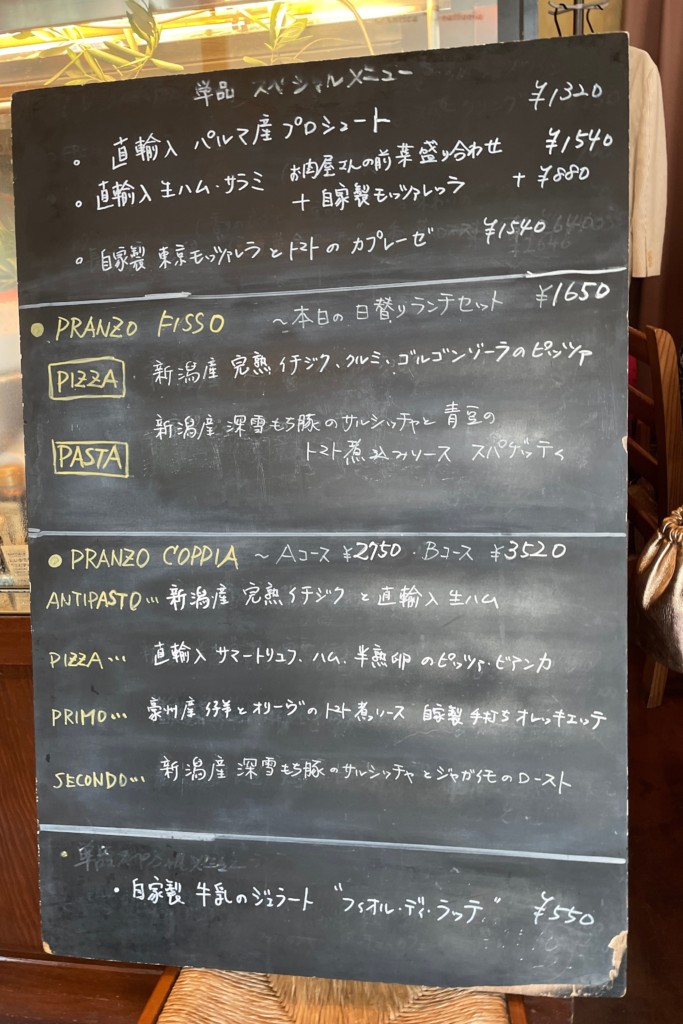 単品 スペシャルメニュー
。直輸入 パルマ産 プロシュート ¥1320
。直輸入 生ハム・サラミ お肉屋さんの前菜盛り合わせ ¥1540
+ 自家製モッツァレッラ + ¥880
。自家製 東京モッツァレラとトマトの カプレーゼ ¥1540
● PRANZO FISSO ~本日の 日替りランチセット ¥1650
PIZZA 新潟産 完熟イチジク、クルミ、ゴルゴンゾーラのピッツァ
PASTA 新潟産 深雪もち豚のサルシッチャと 青豆の
トマト煮込みソース スパゲッティ
● PRANZO COPPIA ~ Aコース ¥2750・Bコース ¥3520
ANTIPASTO… 新潟産 完熟イチジク と 直輸入 生ハム
PIZZA… 直輸入 サマートリュフ、ハム、半熟卵 のピッツァ・ビアンカ
PRIMO… 豪州産 仔羊とオリーヴのトマト煮ソース 自家製 手打ち オレッキエッテ
SECONDO… 新潟産 深雪もち豚のサルシッチャとジャガイモのロースト
・自家製 牛乳のジェラート "フィオル・ディ・ラッテ" ¥550